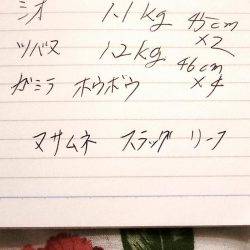 シオ 1.1kg 45cm
×2
ツバス 1.2kg 46cm
×4
ガシラ ホウボウ
マサムネ スラッグ リーフ